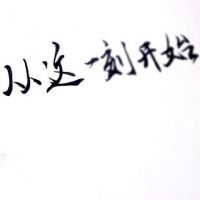 从这一刻开始